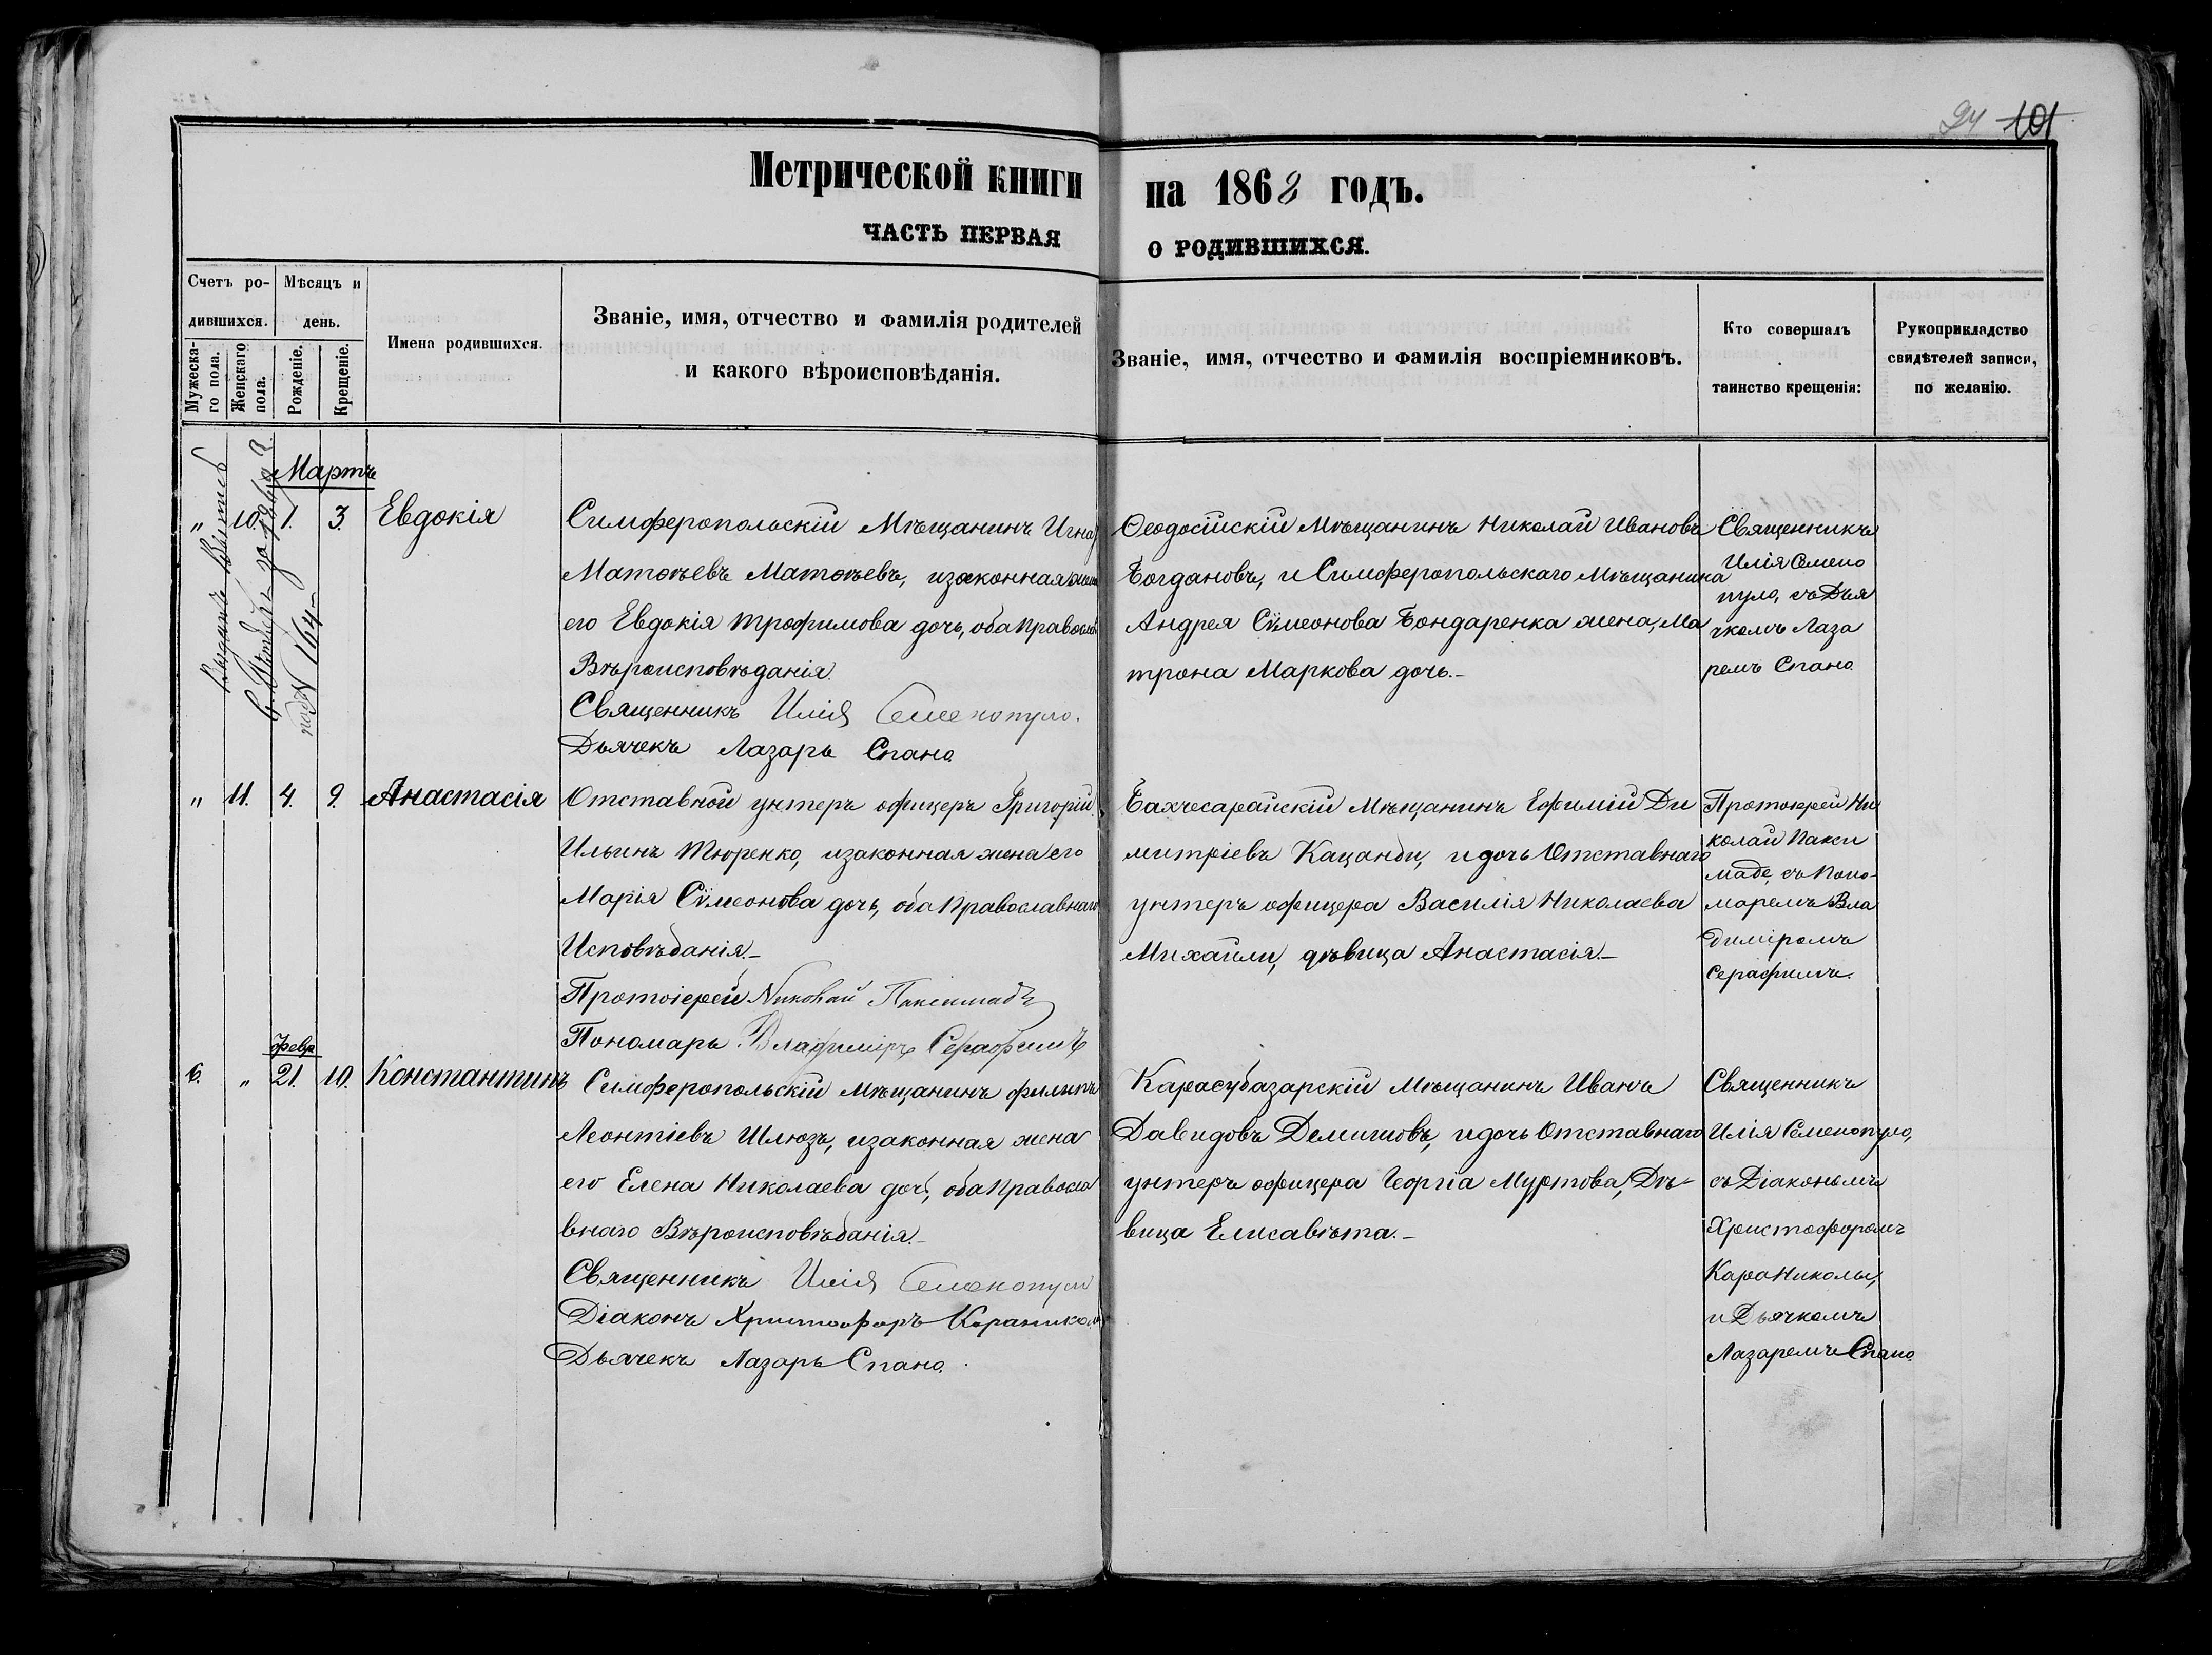 24 101
Метрической книги на 1868 годъ.
ЧАСТЬ ПЕРВАЯ О РОДИВШИХСЯ.
Счетъ ро-
дившихся.
Мужеска-
го пола.
Женскаго
пола.
Мѣсяцъ и
день.
Рожденіе.
Крещеніе.
Имена родившихся.
Званіе, имя, отчество и фамилія родителей
и какого вѣроисповѣданія.
Званіе, имя, отчество и фамилія воспріемниковъ.
Кто совершалъ
таинство крещенія:
Рукоприкладство
свидѣтелей записи,
по желанію.
за
№ 164
Мартъ
" 10. 1. 3. Евдокія
Симферопольскій Мѣщанинъ Игна
Матѳѣевъ Матѳѣевъ, и законная жена
его Евдокія Трофимова дочь, оба Православ
Вѣроисповѣданія.
Священникъ Илія Семенопуло.
Дьячекъ Лазарь Спано
Ѳеодосійскій Мѣщанинъ Николай Ивановъ
Богдановъ, и Симферопольскаго Мѣщанина
Андрея Сѷмеонова Бондаренка жена, Ма
трона Маркова дочь.-
Священникъ
Илія Семено
пуло, съ Дья
чкомъ Лаза
ремъ Спано
" 11. 4. 9. Анастасія
Отставной унтеръ офицеръ Григорій
Ильинъ Тюренко, и законная жена его
Марія Сѷмеонова дочь, оба Православнаго
Исповѣданія.-
Протоіерей Николай Паксимадъ
Пономарь Владиміръ Серафимъ
Бахчесарайскій Мѣщанинъ Ефимій Ди
митріевъ Кацанди, и дочь Отставнаго
унтеръ офицера Василія Николаева
Михайли, дѣвица Анастасія.-
Протоіерей Ни
колай Пакси
маде, съ Поно-
маремъ Вла
диміромъ
Серафимъ.
февр
6. " 21. 10. Константинъ
Симферопольскій Мѣщанинъ Филипъ
Леонтіевъ Шлюзъ, и законная жена
его Елена Николаева дочь, оба Правосла
внаго Вѣроисповѣданія.-
Священникъ Илія Семенопуло
Діаконъ Христофоръ Караникола
Дьячекъ Лазарь Спано.
Карасубазарскій Мѣщанинъ Иванъ
Давидовъ Демишовъ, и дочь Отставнаго
унтеръ офицера Георгіа Муртова, Дѣ-
вица Елисавѣта.-
Священникъ
Илія Семенопуло,
съ Діакономъ
Христофоромъ
КараНиколы,
и Дьячкомъ
Лазаремъ Спано